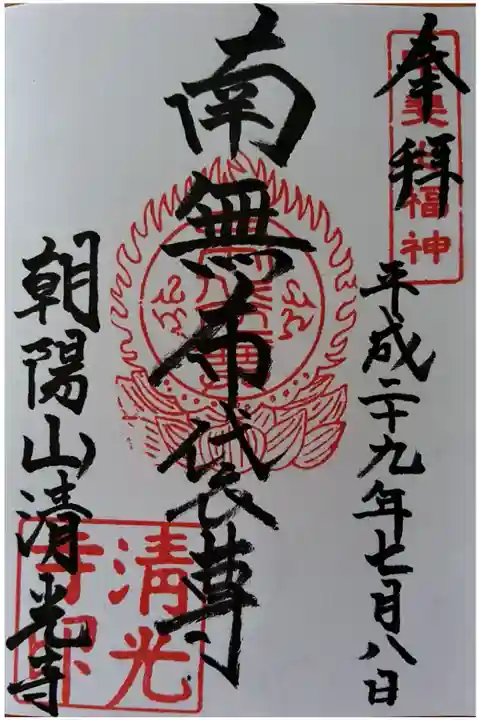 奉拝
福神
平成二十九年七月八日
南無布袋尊
朝陽山清光寺
清光寺印